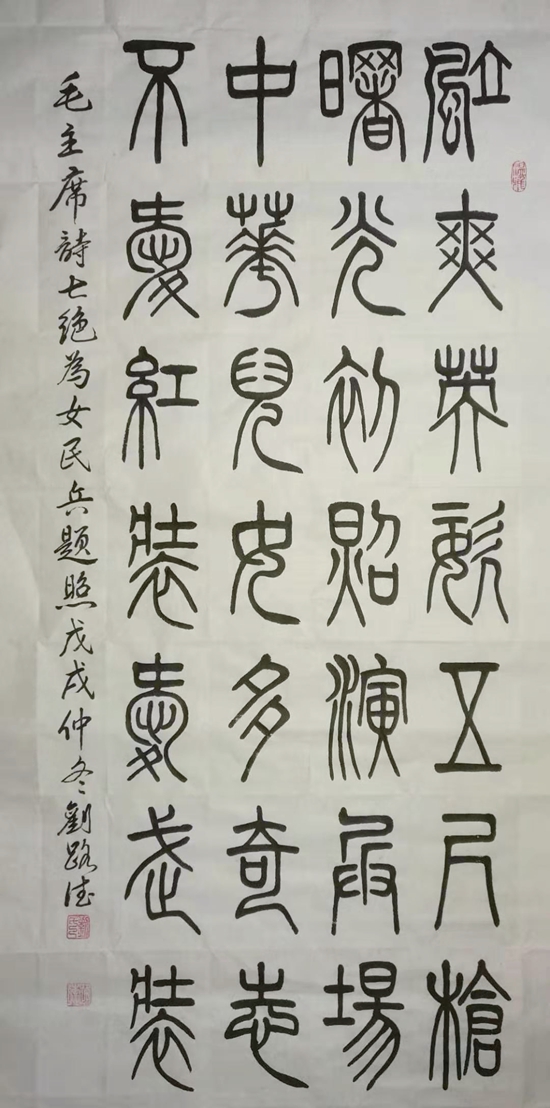 颯爽英姿五尺槍
曙光初照演兵場
中華兒女多奇志
不愛紅裝愛武裝
毛主席詩七絕為女民兵題照戊戌仲冬劉路